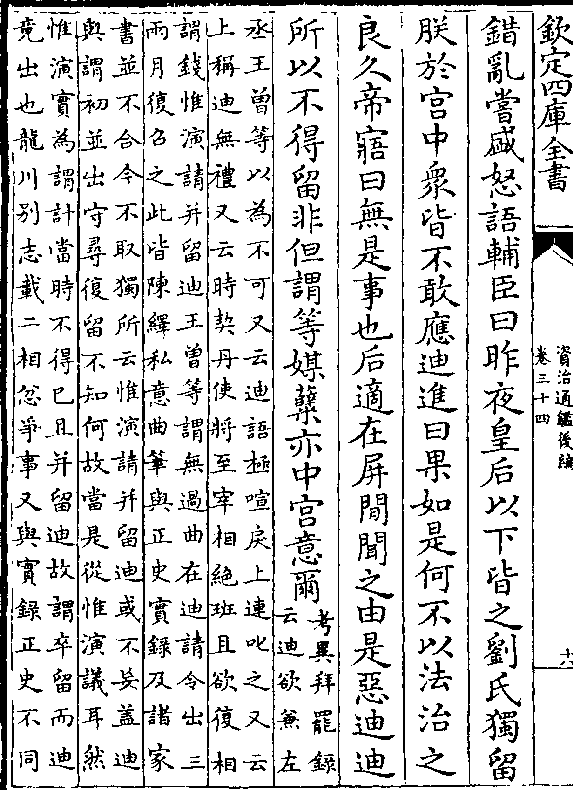 欽定四庫全書
資治通鑑後編
卷三十四
十六
錯亂嘗盛怒語輔臣曰昨夜皇后以下皆之劉氏獨留
朕於宫中衆皆不敢應迪進曰果如是何不以法治之
良久帝寤曰無是事也后適在屏間聞之由是惡迪迪
所以不得留非但謂等媒糵亦中宫意爾
考異拜罷錄
云迪欲兼左
丞王曽等以為不可又云迪語極喧戾上連叱之又云
上稱迪無禮又云時契丹使將至宰相絶班且欲復相
謂錢惟演請并留迪王曽等謂無過曲在迪請令出三
兩月復召之此皆陳繹私意曲筆與正史實録及諸家
書並不合今不取獨所云惟演請并留迪或不妄蓋迪
與謂初並出守尋復留不知何故當是從惟演議耳然
惟演實為謂計當時不得已且并留迪故謂卒留而迪
竟出也龍川别志載二相忿爭事又與實録正史不同